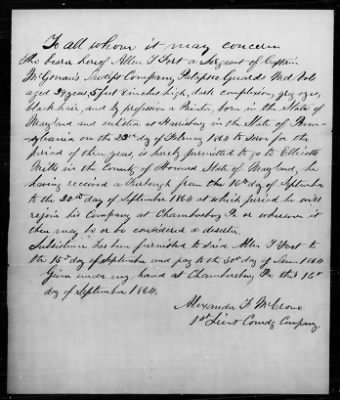 To all whom it may concern
The bearer hereof Allen T Fort a Sergeant of Captain
McGowan's Company, Patapsco Guards Md Vols
aged 29 years, 5 feet 8 inches high, dark complexion, grey eyes,
black hair, and by profession a Painter, born in the State of
Maryland and enlisted at Harrisburg in the State of Penn-
sylvania on the 22nd day of February 1864 to serve for the
period of three years, is hereby permitted to go to Ellicotts
Mills in the County of Howard State of Maryland, he
having received a Furlough from the 16th day of September
to the 22nd day of September 1864 at which period he will
rejoin his Company at Chambersburg Pa or wherever it
then may be or be considered a deserter.
Subsistence has been furnished to said Allen T Fort to
the 15th day of September and pay to the 30th day of June 1864
Given under my hand at Chambersburg Pa this 16th
day of September 1864.
Alexander F McCrone
1st Lieut Comdg Company